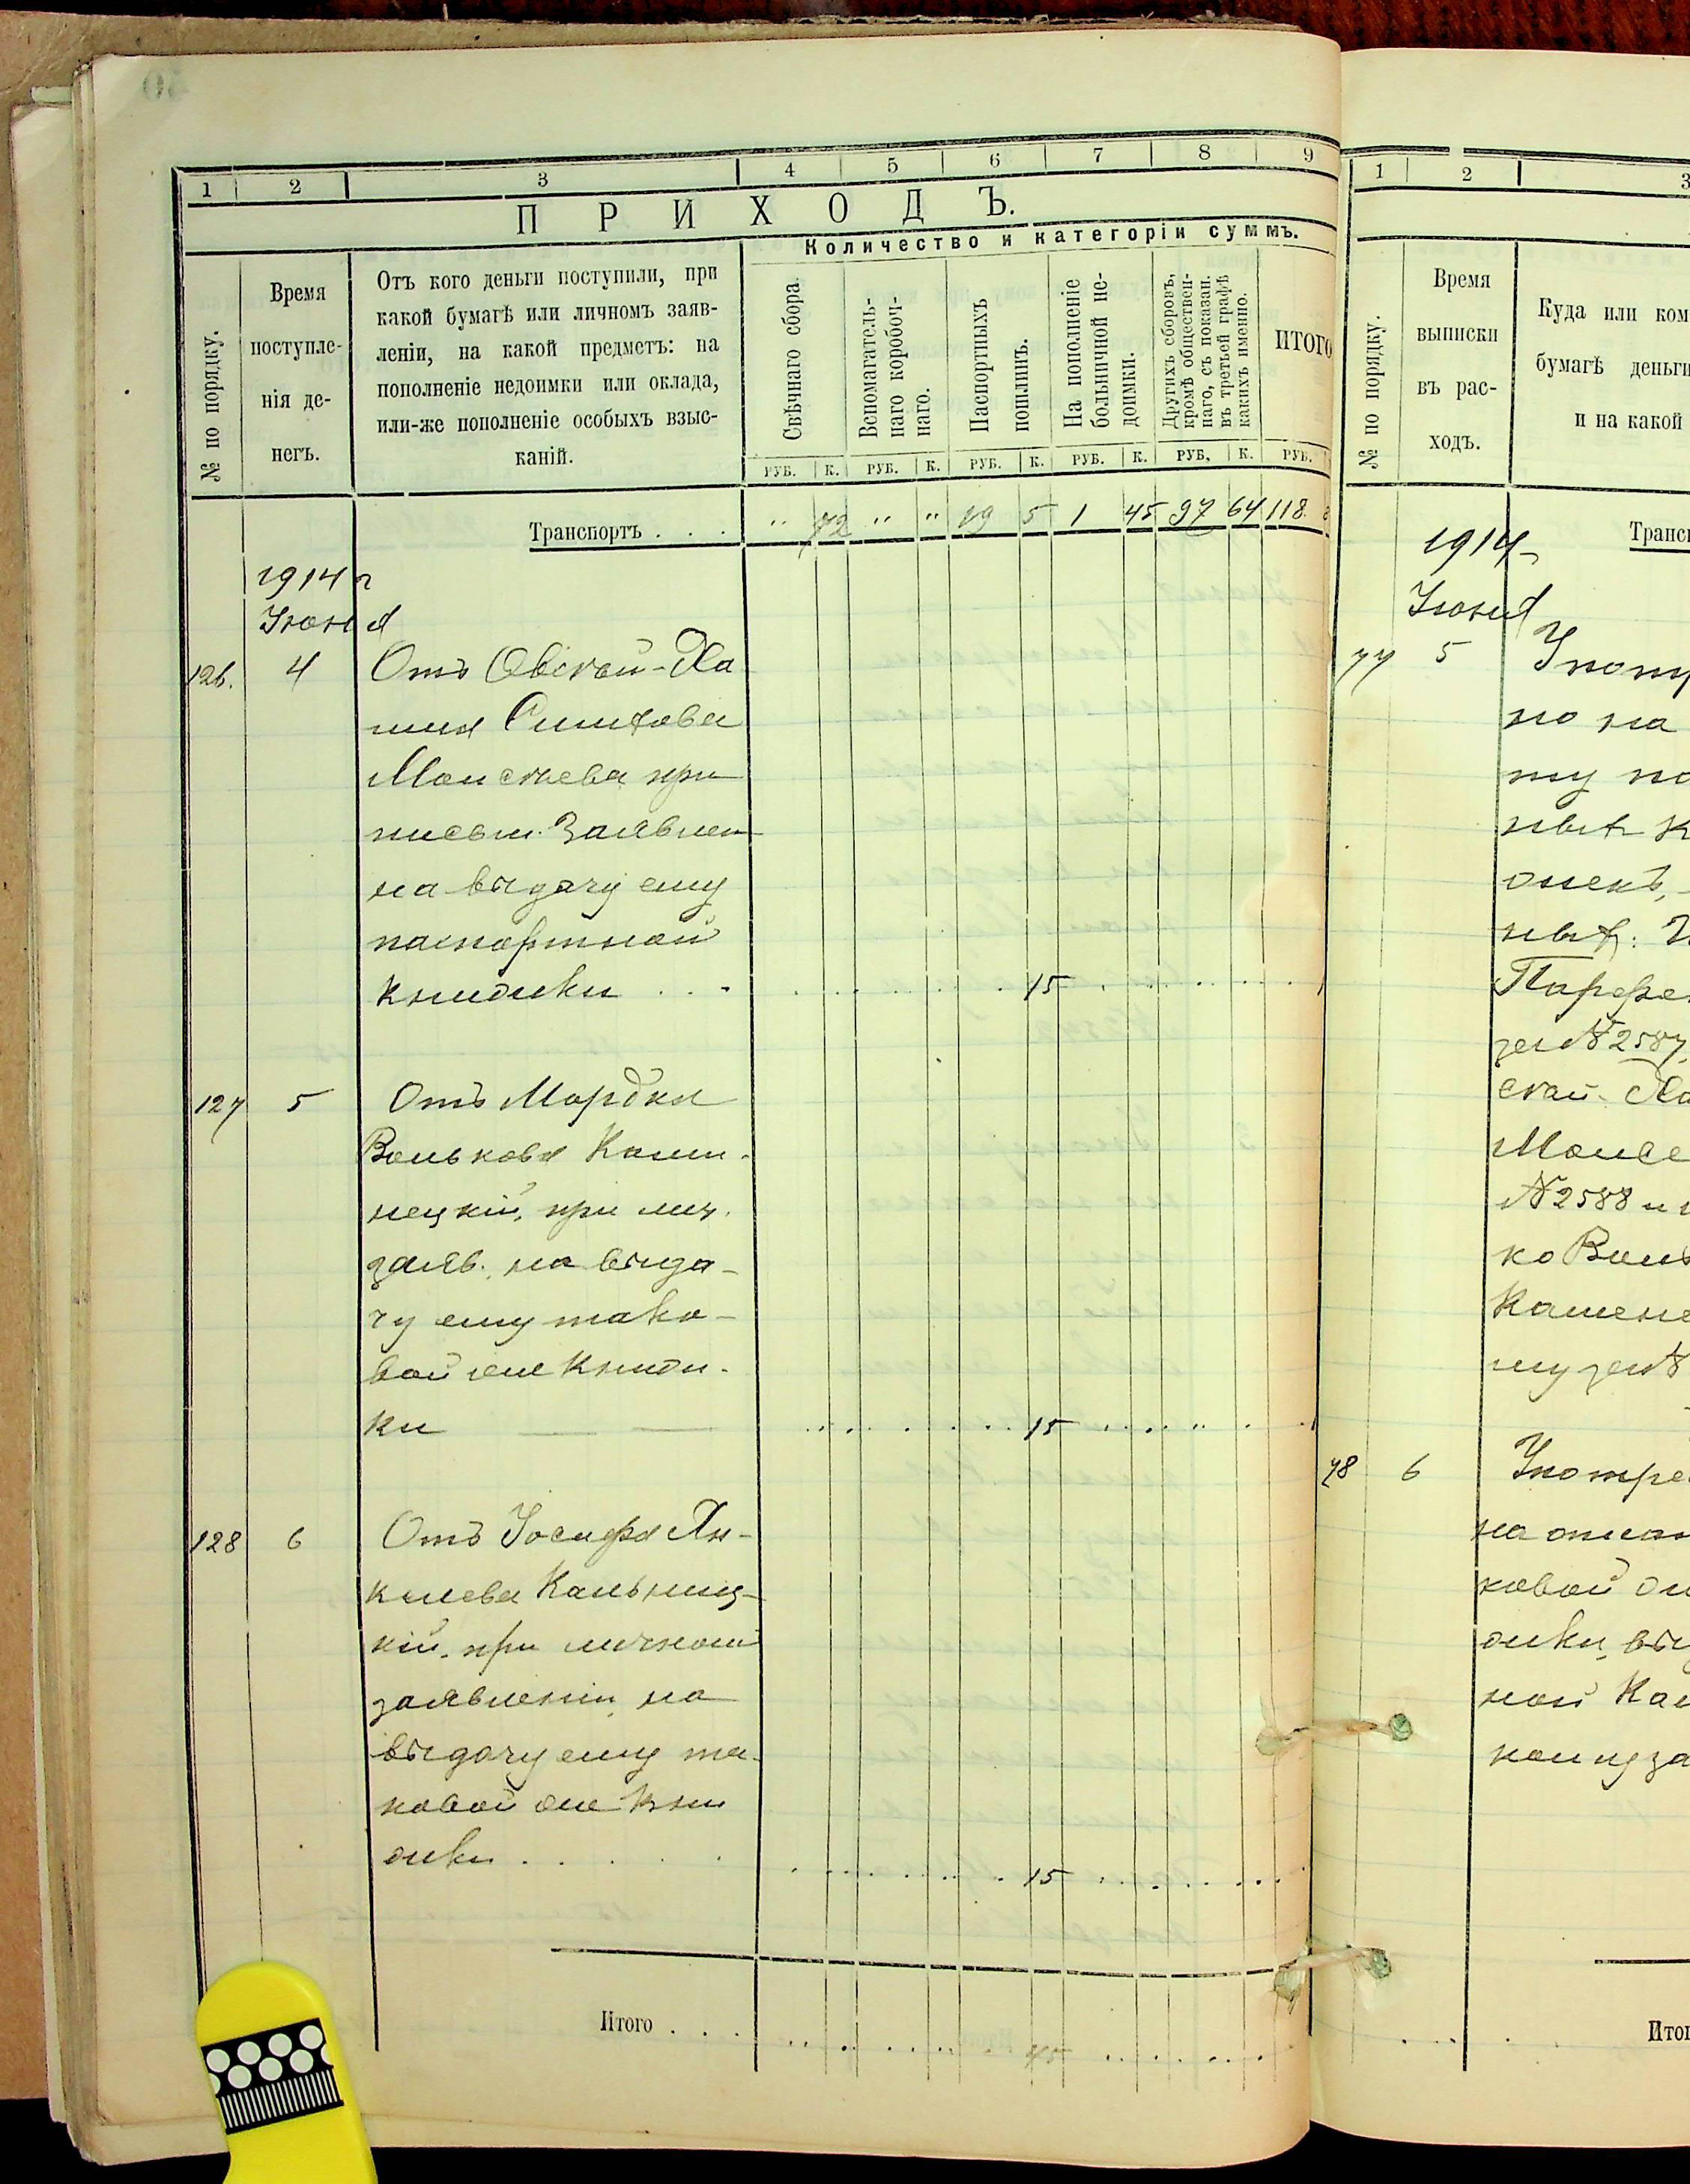 1 2 3 4 5 6 7 8 9
ПРИХОДЪ.
Количество и категоріи суммъ.
№ по порядку.
Время
поступле-
нія де-
негъ.
Отъ кого деньги поступили, при
какой бумагѣ или личномъ заяв-
леніи, на какой предметъ: на
пополненіе недоимки или оклада,
или-же пополненіе особыхъ взыс-
каній.
Свѣчнаго сбора.
Вспомагатель-
наго коробоч-
наго.
Паспортныхъ
пошлинъ.
На пополненіе
больничной не-
доимки.
Другихъ сборовъ,
кромѣ обществен-
наго, съ показан.
въ третьей графѣ
какихъ именно.
ИТОГО
РУБ. К. РУБ. К. РУБ. К. РУБ. К. РУБ. К. РУБ.
Транспортъ . . . " 72 " " 19 5 1 45 97 64 118
1914 г
Июня
126. 4 Отъ
Моисеева при
письм. заявлен
на выдачу ему
паспортной
книжки . . . 15
127 5 Отъ Мордка
Волькова Каме-
нецкій, при лич.
заяв. на выда-
чу ему тако-
вой же книж-
ки 15
128 6 Отъ Іосифа Ян-
келева Кальниц-
кій, при личном
заявленіи, на
выдачу ему та-
ковой же кни
жки . . . . . 15
Итого . . . 45
1 2 3
№ по порядку.
Время
выписки
въ рас-
ходъ.
Куда или ком
бумагѣ деньги
и на какой
Трансп
1914
Июня
77 5 Употр
но на
ту по
Парфе
№ 2587,
Моисе
№ 2588 и
ко Воль
Камене
78 6 Употре
ковой
жки, вы
ной Кан
Итог